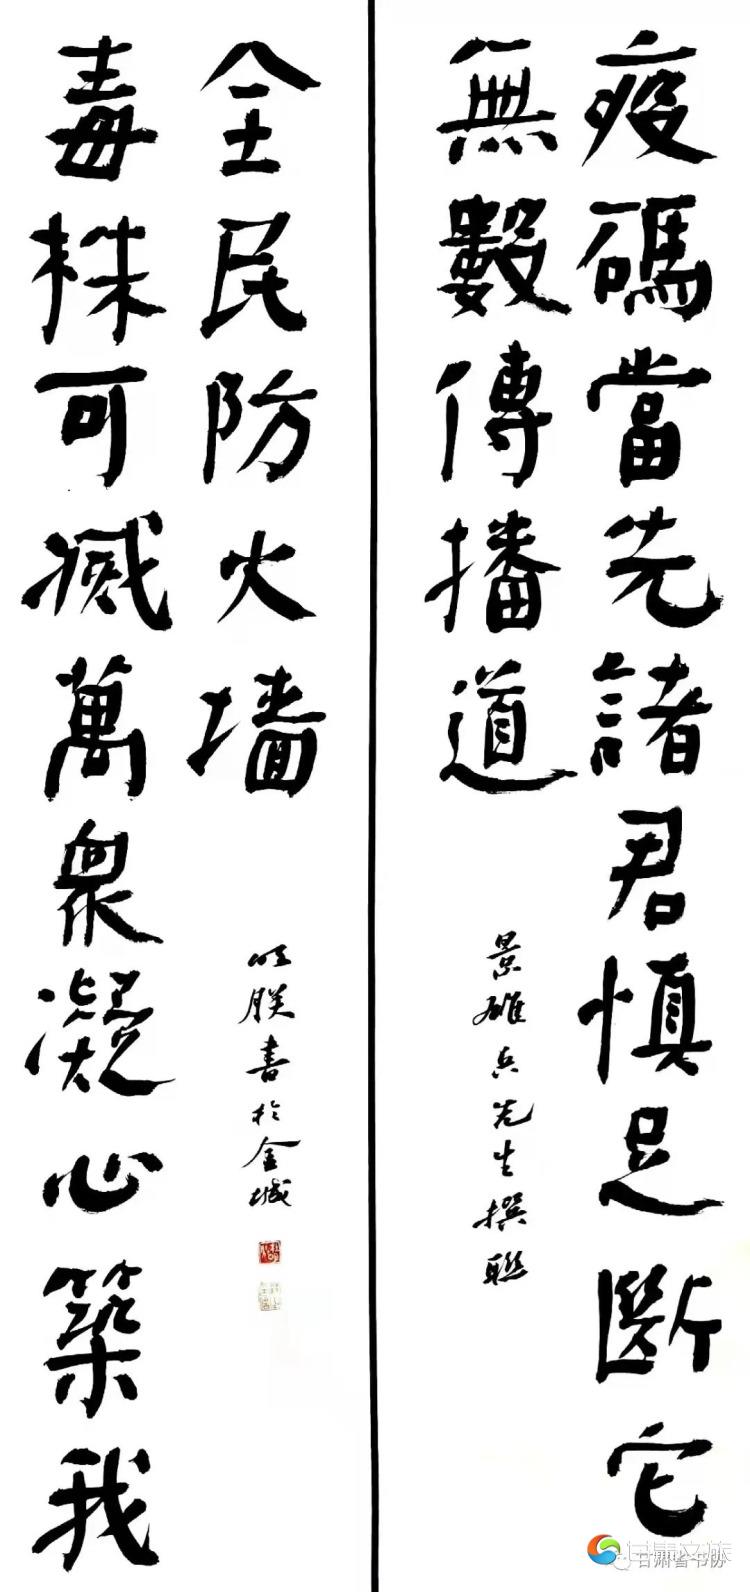 疫碼當先諸君慎足斷它
無數傳播道
景雄兵先生撰聯
毒株可滅萬衆凝心築我
全民防火墙
書於金城
甘肃文旅
甘肃省书协